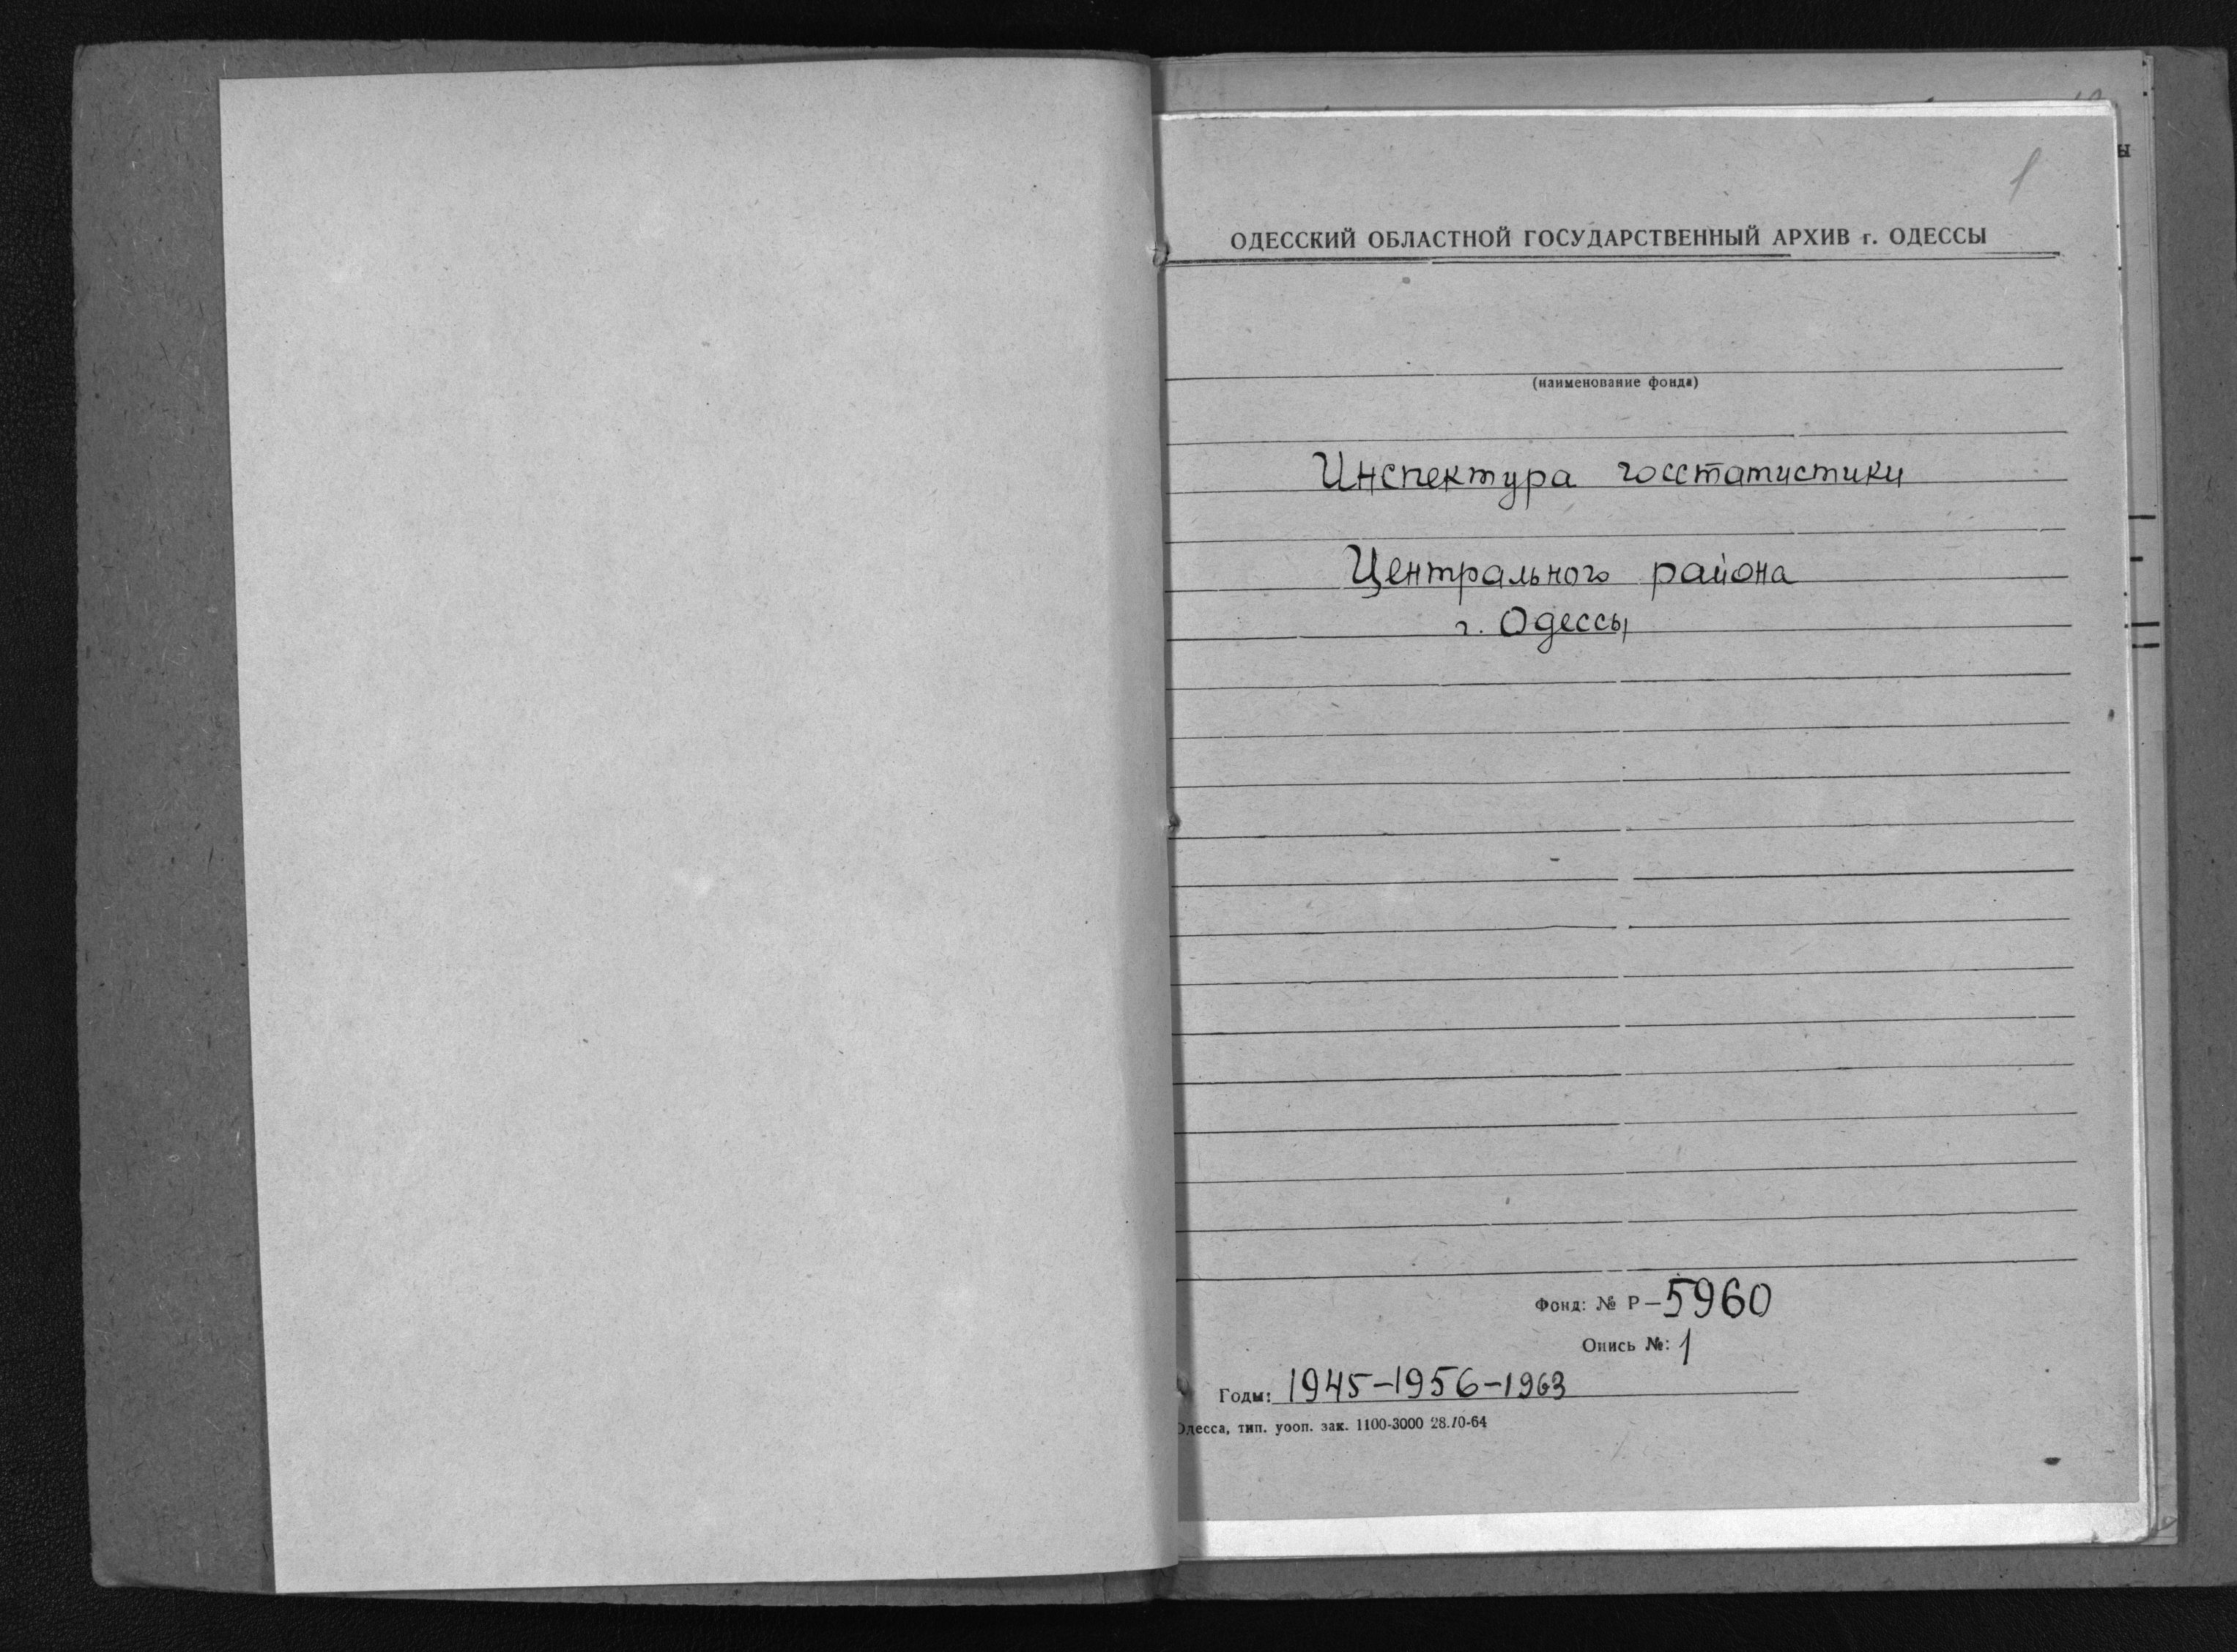 1
ОДЕССКИЙ ОБЛАСТНОЙ ГОСУДАРСТВЕННЫЙ АРХИВ г. ОДЕССЫ
(наименование фонда)
Инспектура госстатистики
Центрального района
г. Одессы
Фонд: № Р-5960
Опись №: 1
Годы: 1945-1956-1963
Одесса, тип. уооп. зак. 1100-3000 28.10-64